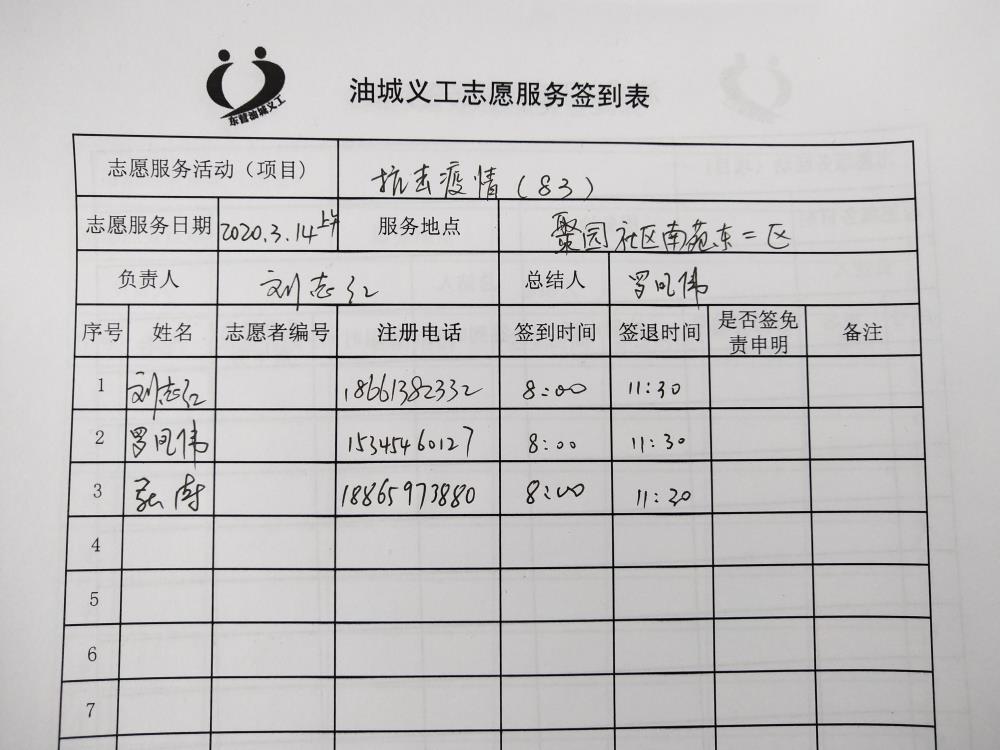 东营油城义工
油城义工志愿服务签到表
志愿服务活动（项目） 抗击疫情（83）
志愿服务日期 2020.3.14上午 服务地点 聚园社区南苑东二区
负责人 刘志红 总结人 罗凤伟
序号 姓名 志愿者编号 注册电话 签到时间 签退时间 是否签免责申明 备注
1 刘志红 18661382332 8:00 11:30
2 罗凤伟 15345460127 8:00 11:30
3 18865973880 8:00 11:30
4
5
6
7